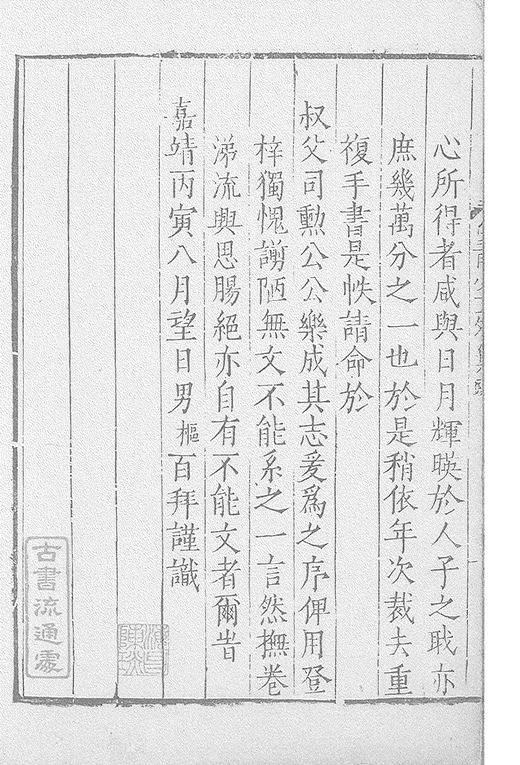 心所得者咸與日月輝暎於人子之職亦
庶幾萬分之一也於是稍依年次裁去重
複手書是帙請命於
叔父司勳公公樂成其志爰為之序俾用登
梓獨愧謭陋無文不能系之一言然撫卷
涕流興思腸絕亦自有不能文者爾昔
嘉靖丙寅八月望日男樞百拜謹識
古書流通處